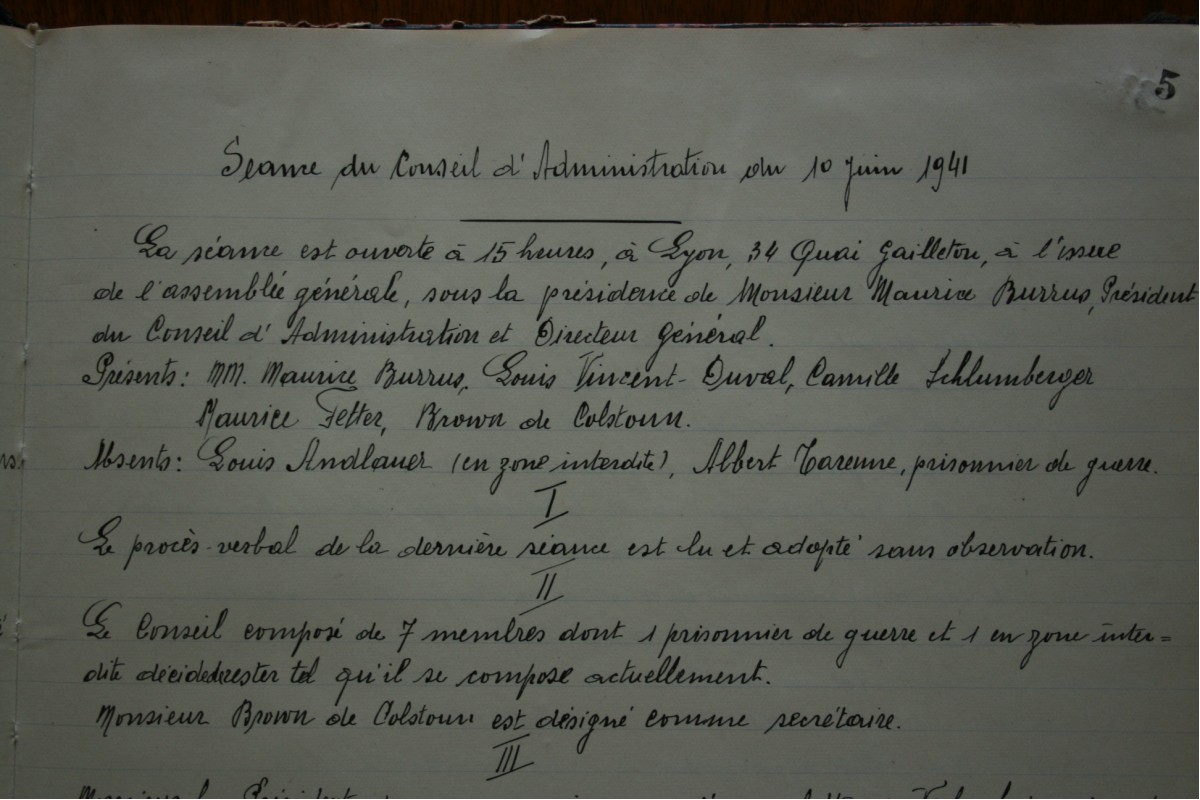 5
Séance du Conseil d'Administration du 10 Juin 1941
La séance est ouverte à 15 heures, à Lyon, 34 Quai Gailleton, à l'issue
de l'assemblée générale, sous la présidence de Monsieur Maurice Burrus, Président
du Conseil d'Administration et Directeur Général.
Présents: MM. Maurice Burrus, Louis Vincent-Duval, Camille Schlumberger
Maurice Fetter, Brown de Colstoun.
Absents: Louis Andlauer (en zone interdite), Albert Tarenne, prisonnier de guerre.
I
Le procès-verbal de la dernière séance est lu et adopté sans observation.
II
Le Conseil composé de 7 membres dont 1 prisonnier de guerre et 1 en zone inter=
dite décide de rester tel qu'il se compose actuellement.
Monsieur Brown de Colstoun est désigné comme secrétaire.
III
Monsieur le Président